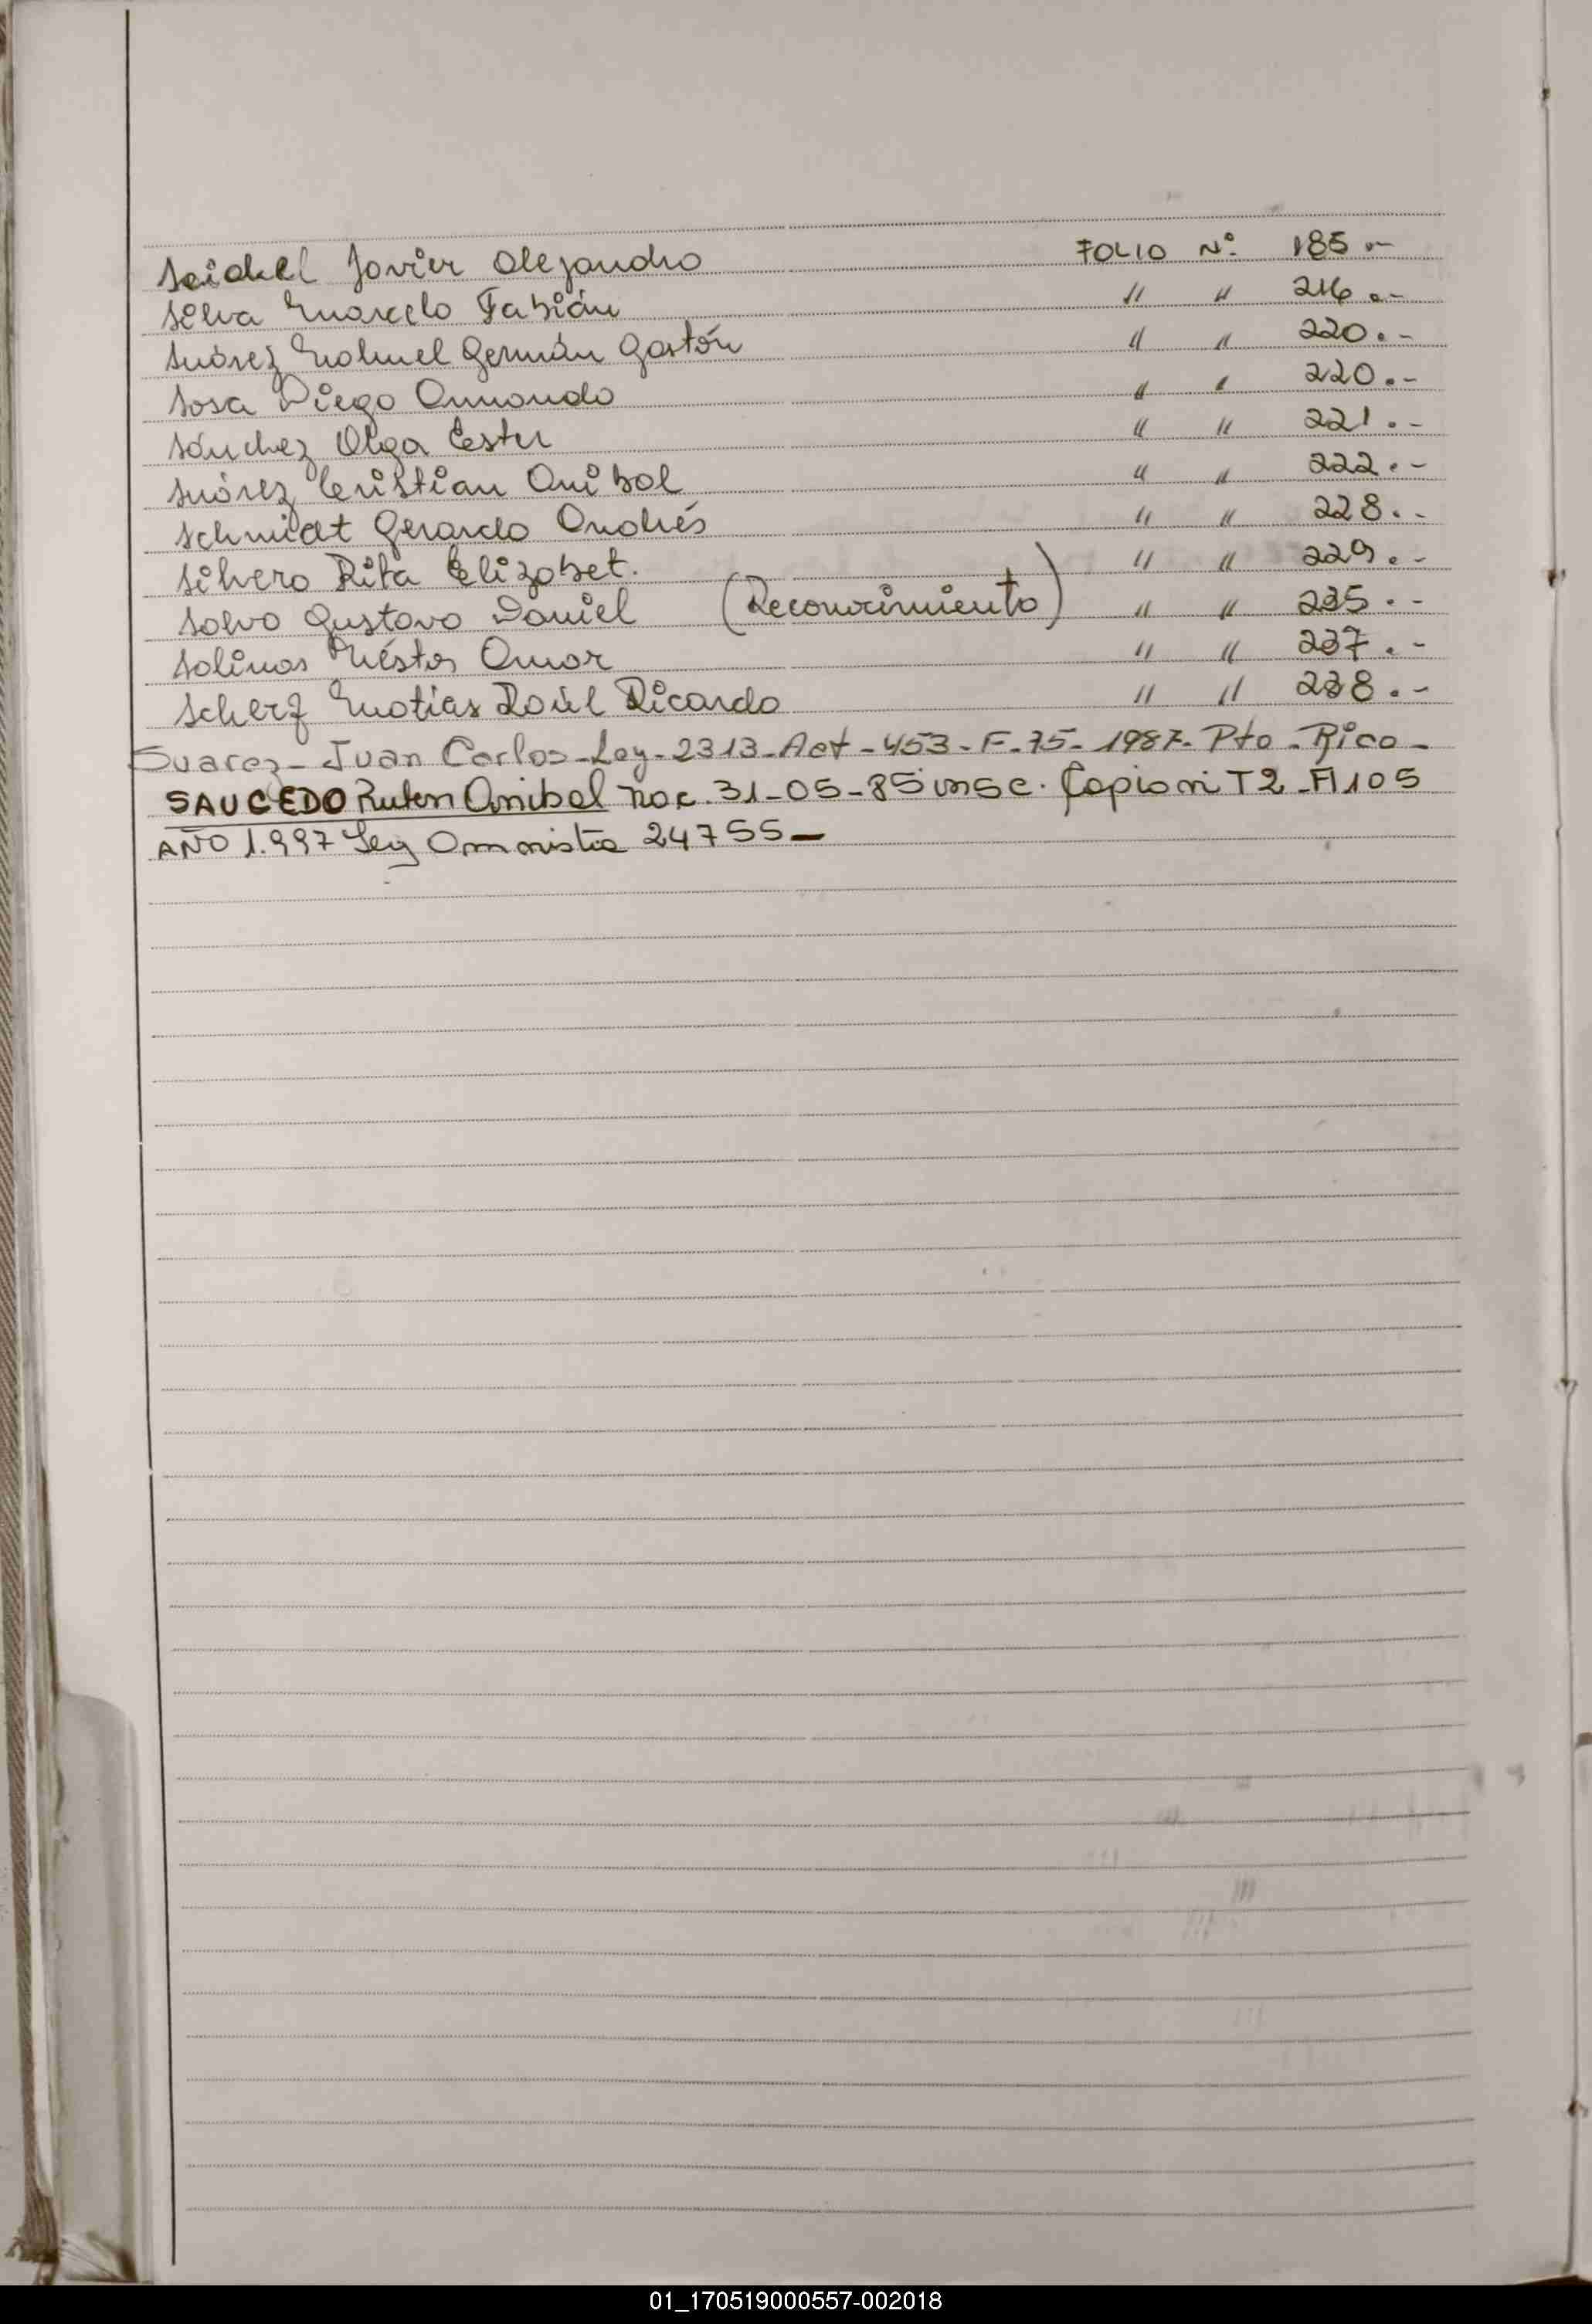 Seidel Javier Alejandro FOLIO Nº 185.-
Silva Marcelo Fabián " " 216.-
Suárez Nahuel Germán Gastón " " 220.-
Sosa Diego Armando " " 220.-
Sánchez Olga Ester " " 221.-
Suárez Cristian Anibal " " 222.-
Schmidt Gerardo Andrés " " 228.-
Silvero Rita Elizabet. " " 229.-
Salvo Gustavo Daniel (Reconocimiento) " " 235.-
Salinas Néstor Omar " " 237.-
Scherf Matias Raúl Ricardo " " 238.-
Suarez - Juan Carlos - Ley - 2313 - Act - 453 - F. 75 - 1987 - Pto - Rico -
SAUCEDO Ruben Anibal nac. 31-05-85 insc. Capiovi T2 - Fl 105
AÑO 1.997 Ley Amnistia 24755 -
01_170519000557-002018